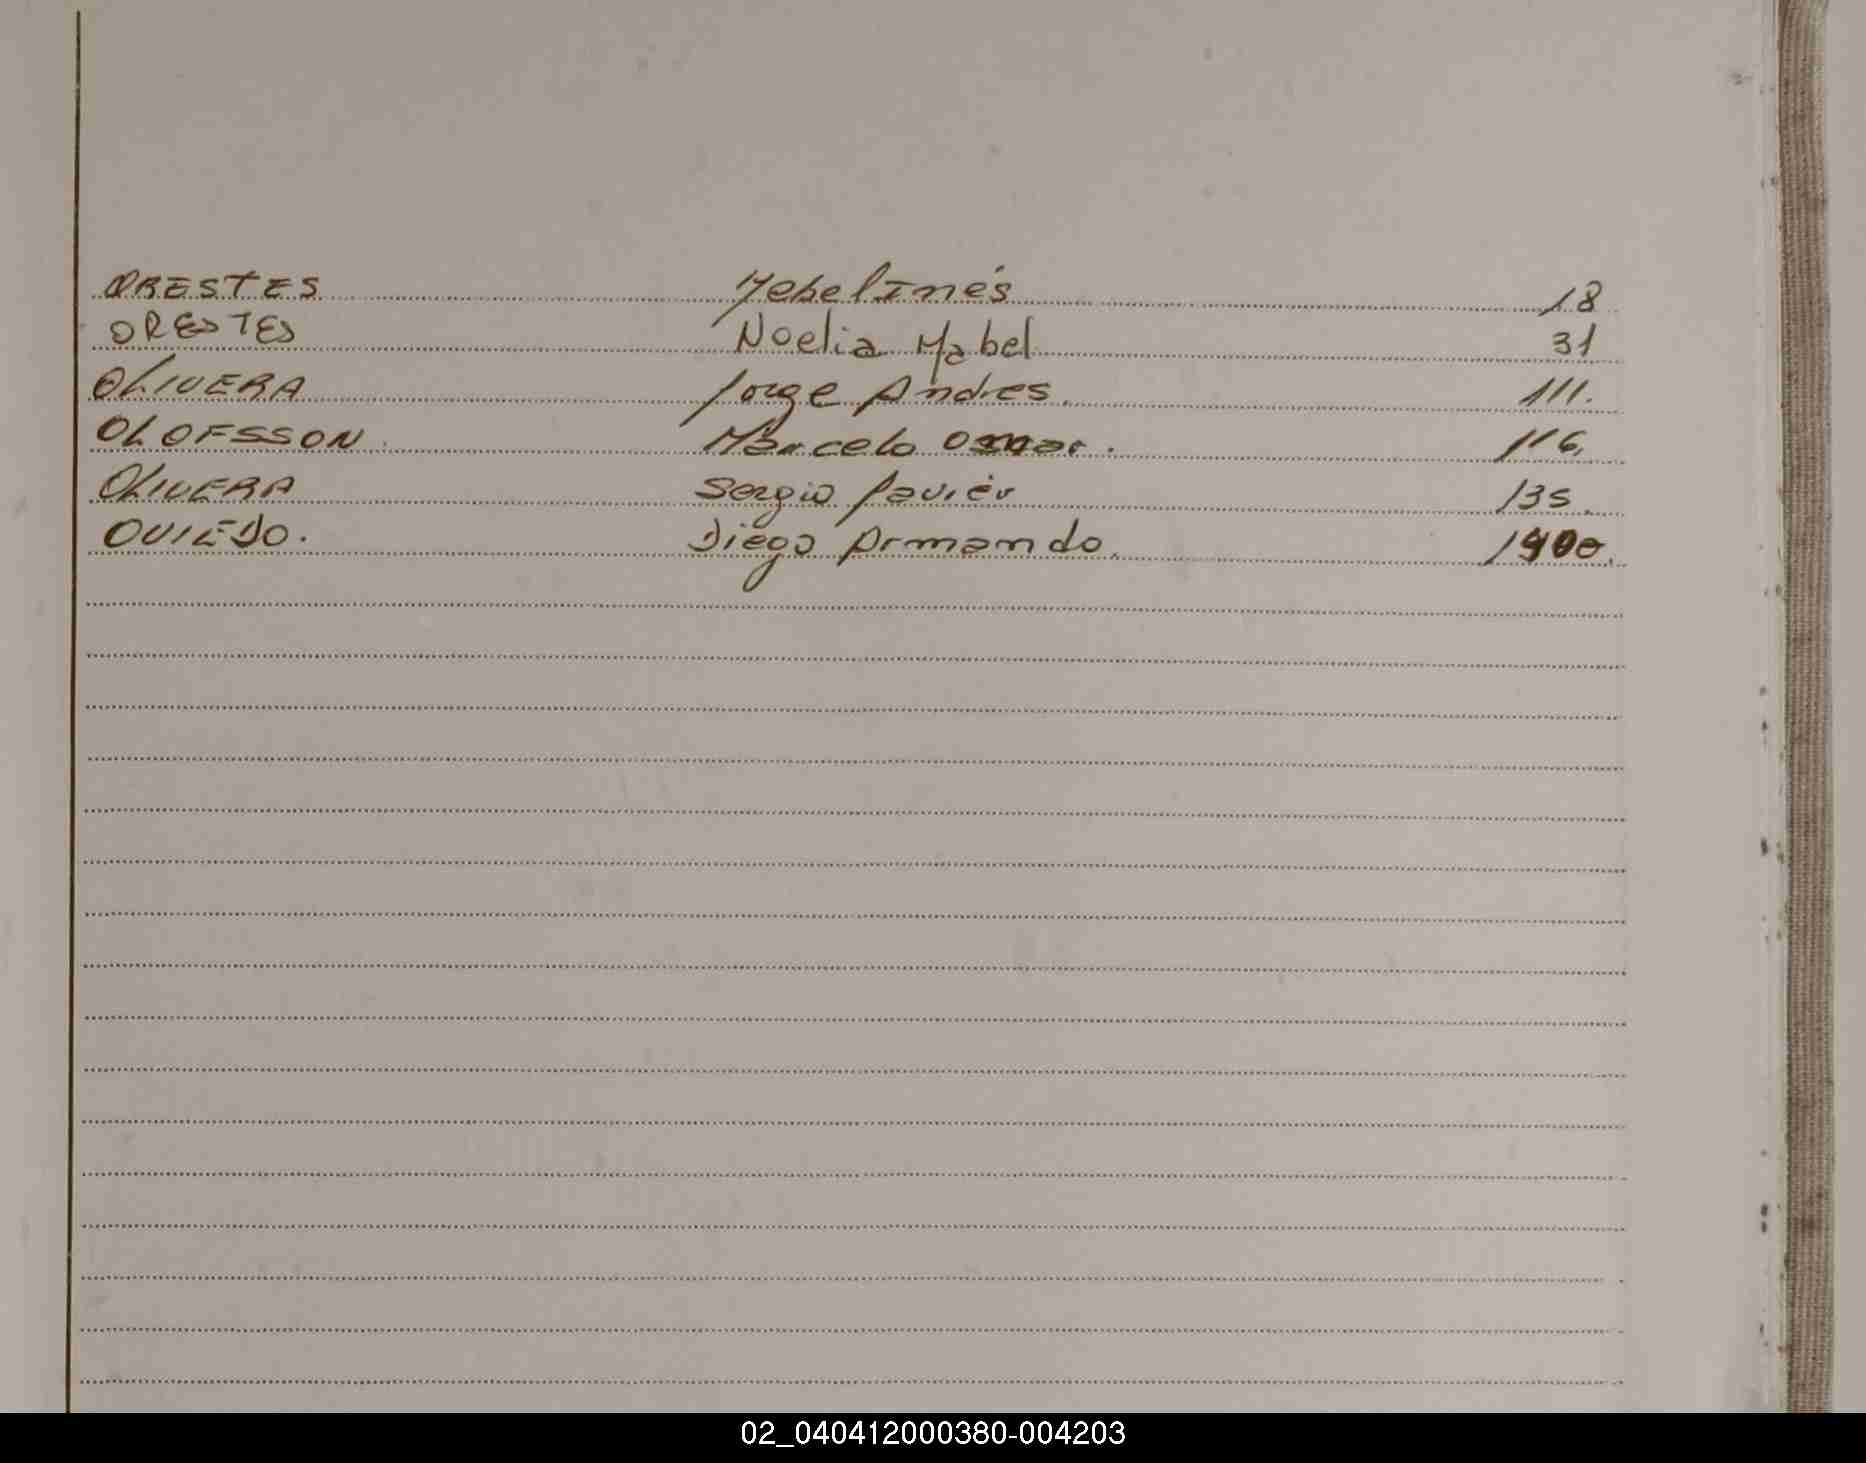 ORESTES Mabel Inés 18
ORESTES Noelia Mabel 31
OLIVERA Jorge Andres. 111.
OLOFSSON. Marcelo Omar. 116.
OLIVERA Sergio Javier 135.
OVIEDO. Diego Armando.
02_040412000380-004203